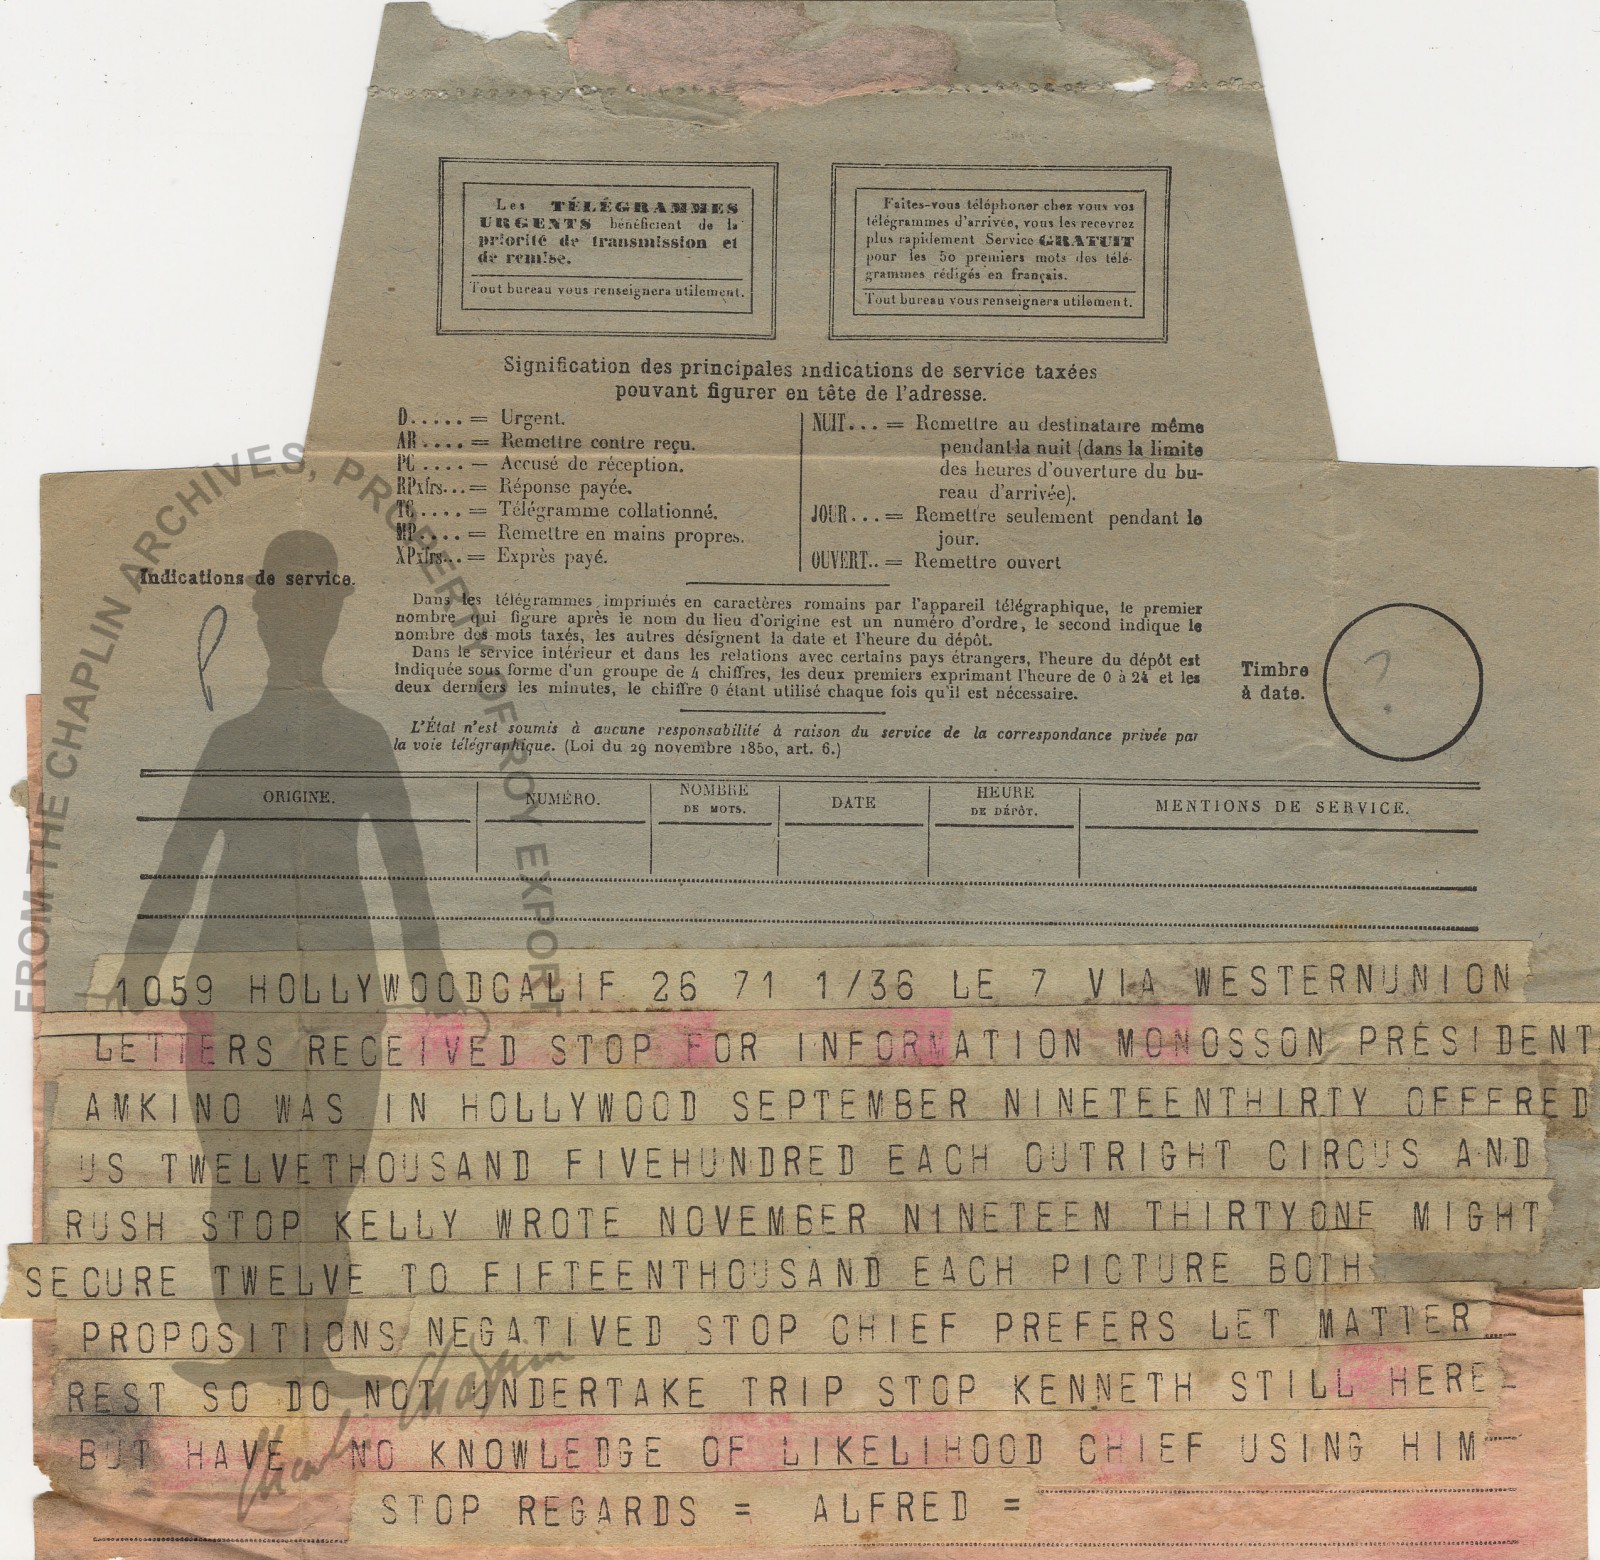 Les TÉLÉGRAMMES
URGENTS bénéficient de la
priorité de transmission et
de remise.
Tout bureau vous renseignera utilement.
Faites-vous téléphoner chez vous vos
télégrammes d'arrivée, vous les recevrez
plus rapidement Service GRATUIT
pour les 50 premiers mots des télé-
grammes rédigés en français.
Tout bureau vous renseignera utilement.
Signification des principales indications de service taxées
pouvant figurer en tête de l'adresse.
D..... = Urgent.
AR.... = Remettre contre reçu.
PC.... — Accusé de réception.
RPxfrs...= Réponse payée.
TC.... = Télégramme collationné.
MP.... = Remettre en mains propres.
XPxfrs...= Exprès payé.
NUIT... = Remettre au destinataire même
pendant la nuit (dans la limite
des heures d'ouverture du bu-
reau d'arrivée).
JOUR... = Remettre seulement pendant le
jour.
OUVERT.. = Remettre ouvert
Indications de service.
P
Dans les télégrammes imprimés en caractères romains par l'appareil télégraphique, le premier
nombre qui figure après le nom du lieu d'origine est un numéro d'ordre, le second indique le
nombre des mots taxés, les autres désignent la date et l'heure du dépôt.
Dans le service intérieur et dans les relations avec certains pays étrangers, l'heure du dépôt est
Indiquée sous forme d'un groupe de 4 chiffres, les deux premiers exprimant l'heure de 0 à 24 et les
deux derniers les minutes, le chiffre 0 étant utilisé chaque fois qu'il est nécessaire.
L'État n'est soumis à aucune responsabilité à raison du service de la correspondance privée par
la voie télégraphique. (Loi du 29 novembre 1850, art. 6.)
Timbre
à date.
?
ORIGINE. NUMÉRO. NOMBRE DE MOTS. DATE HEURE DE DÉPÔT. MENTIONS DE SERVICE.
1059 HOLLYWOODCALIF 26 71 1/36 LE 7 VIA WESTERNUNION
LETTERS RECEIVED STOP FOR INFORMATION MONOSSON PRESIDENT
AMKINO WAS IN HOLLYWOOD SEPTEMBER NINETEENTHIRTY OFFFRED
US TWELVETHOUSAND FIVEHUNDRED EACH OUTRIGHT CIRCUS AND
RUSH STOP KELLY WROTE NOVEMBER NINETEEN THIRTYONE MIGHT
SECURE TWELVE TO FIFTEENTHOUSAND EACH PICTURE BOTH
PROPOSITIONS NEGATIVED STOP CHIEF PREFERS LET MATTER
REST SO DO NOT UNDERTAKE TRIP STOP KENNETH STILL HERE
BUT HAVE NO KNOWLEDGE OF LIKELIHOOD CHIEF USING HIM
STOP REGARDS = ALFRED =
FROM THE CHAPLIN ARCHIVES, PROPERTY OF ROY EXPORT
Charlie Chaplin